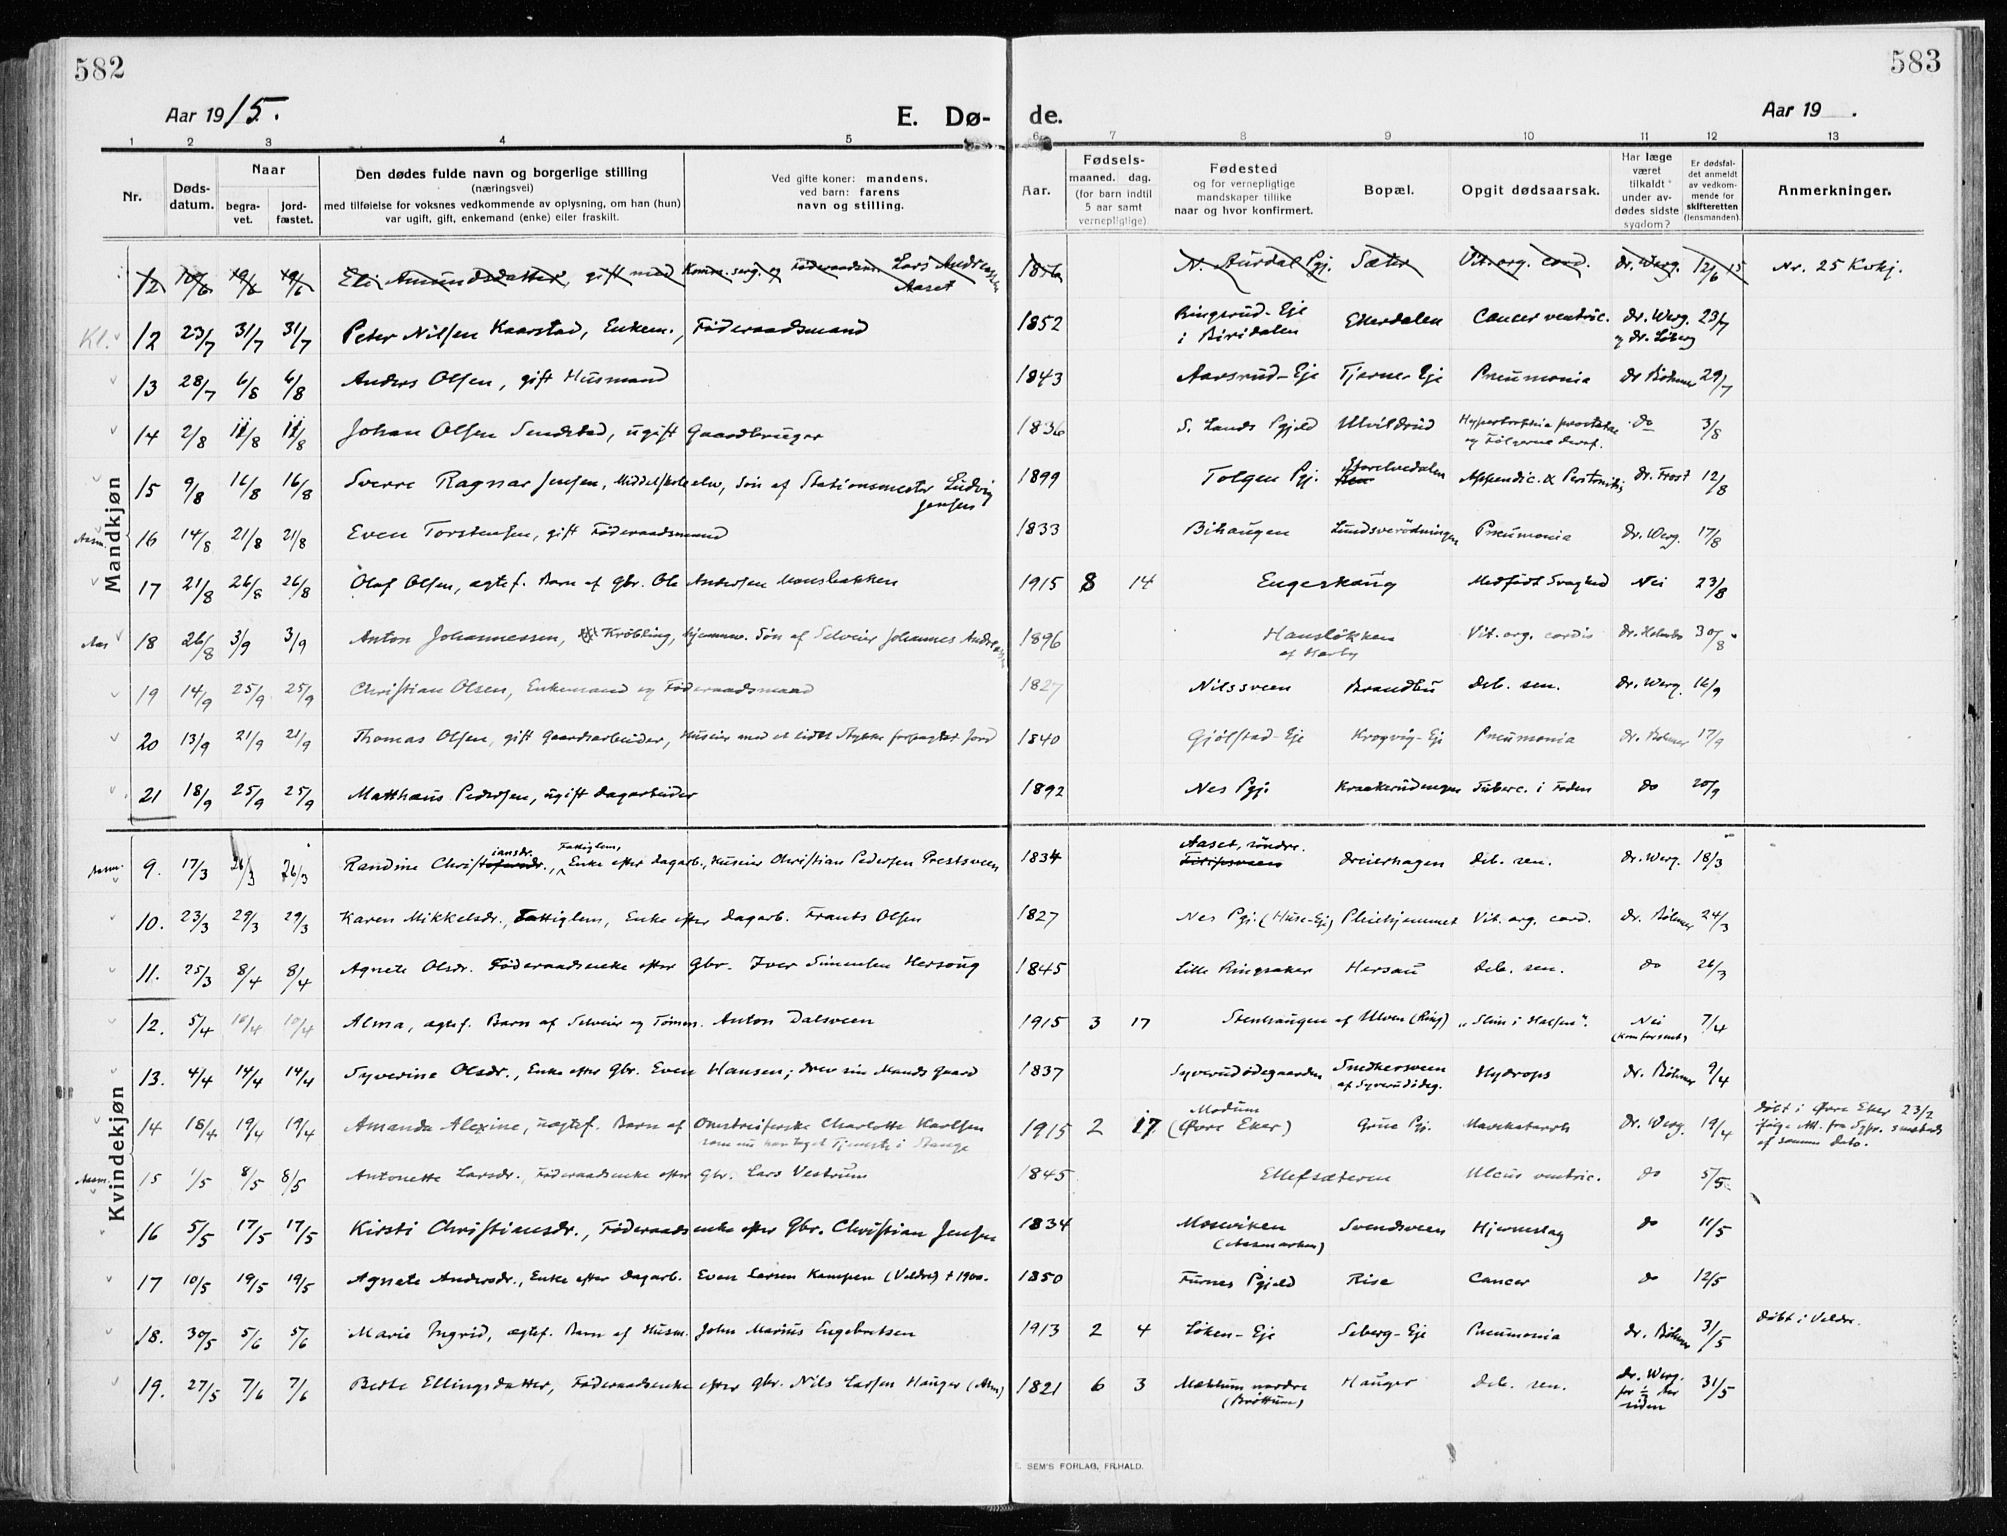 582
583
Aar 1915.
E. Dø-
de.
Aar 19 .
1 2 3 4 5 6 7 7 8 9 10 11 12 13
Nr.
Døds-
datum.
Naar
begra-
vet.
jord-
fæstet.
Den dødes fulde navn og borgerlige stilling
(næringsvei)
med tilføielse for voksnes vedkommende av oplysning, om han (hun)
var ugift, gift, enkemand (enke) eller fraskilt.
Ved gifte koner: mandens.
ved barn: farens
navn og stilling.
Aar.
Fødsels-
maaned. dag.
(for barn indtil
5 aar samt
vernepligtige)
Fødested
og for vernepligtige
mandskaper tillike
naar og hvor konfirmert.
Bopæl.
Opgit dødsaarsak.
Har læge
været
tilkaldt
under av-
dødes sidste
sygdom?
Er dødsfal-
det anmeldt
av vedkom-
mende for
skifteretten
(lensmanden)
Anmerkninger.
Mandkjøn
12 Eli Amundsdatter, gift med Lars Andreassen Aaset 1816 N. Aurdal Pgj. Sæter Vit. org. cord. dr. Werg. 12/6 15 Nr. 25 Kvkj.
Kl. 12 23/7 31/7 31/7 Peter Nilsen Kaarstad, Enkem., Føderaadsmand 1852 Ringsrud-Eje i Biridalen Ederdalen Cancer ventric. dr. Werg. og dr. Løberg 23/7
13 28/7 6/8 6/8 Anders Olsen, gift Husmand 1843 Aarsrud-Eje Tjerne-Eje Pneumonia dr Böhmer 29/7
14 2/8 11/8 11/8 Johan Olsen Sendstad, ugift Gaardbruger 1836 S. Lands Pgjeld Ulvildrud Hypertrophia prostatae og Følgerne deraf. do 3/8
15 9/8 16/8 16/8 Sverre Ragnar Jensen, Middelskoleelev, Søn af Stationsmester Ludvig Jensen 1899 Tolgen Pgj. Storelvedalen Appendic. & Peritonitis dr. Frost 12/8
Asm. 16 14/8 21/8 21/8 Even Torstensen, gift Føderaadsmand 1833 Bihaugen Lundsverødningen Pneumonia dr. Werg. 17/8
17 21/8 26/8 26/8 Olaf Olsen, ægtef. Barn af Gbr. Ole Andersen Monsbakken 1915 8 14 Engeskaug Medfødt Svaghed Nei 23/8
Aas 18 26/8 3/9 3/9 Anton Johannessen, Krøbling, hjemmev. Søn af Selveier Johannes Andreassen 1896 Hansløkken af Harby Vit. org. cordis dr. Holmbo 30/8
19 14/9 25/9 25/9 Christian Olsen, Enkemand og Føderaadsmand 1827 Nilssveen Brandbu Deb. sen. dr. Werg. 16/9
20 13/9 21/9 21/9 Thomas Olsen, gift Gaardsarbeider, Huseier med et lidet Stykke forpagtet Jord 1840 Gjølstad-Eje Krogvig-Eje Pneumonia dr. Böhmer 17/9
21 18/9 25/9 25/9 Matthæus Pedersen, ugift dagarbeider 1892 Nes Pgj. Kraakerudengen Tuberc. i Foden do 20/9
Kvindekjøn
Asm. 9. 17/3 26/3 26/3 Randine Christiansdr., Fattiglem, Enke efter dagarb., Huseier Christian Pedersen Prestsveen 1834 Aaset, søndre. Dreierhagen Deb. sen. Dr. Werg. 18/3
10. 23/3 29/3 29/3 Karen Mikkelsdr., Fattiglem, Enke efter dagarb. Frants Olsen 1827 Nes Pgj. (Huse-Eje) Pleiehjemmet Vit. org. cord. dr. Böhmer 24/3
11. 25/3 8/4 8/4 Agnete Olsdr. Føderaadsenke efter Gbr. Iver Simensen Hersoug 1845 Lille Ringsaker Hersau Deb. sen. do 26/3
12. 5/4 10/4 10/4 Alma, ægtef. Barn af Selveier og Tømm. Anton Dalsveen 1915 3 17 Stenhaugen af Ulven (Ring) "Slim i Halsen". Nei (kom for sent) 7/4
13. 4/4 14/4 14/4 Syverine Olsdr., Enke efter Gbr. Even Hansen; drev sin Mands Gaard 1837 Syverudødegaarden Snedkersveen af Syverudødeg. Hydrops dr. Böhmer 9/4
14 18/4 19/4 19/4 Amanda Alexine, uægtef. Barn af Omstreiferske Charlotte Karlsen som nu har taget Tjeneste i Stange 1915 2 17 Modum (Øvre Eker) Grue Pgj. Mavekatarrh Dr. Werg. 19/4 Døbt i Øvre Eker 23/2 ifølge Att. fra Sypr. smsteds af samme Dato.
Asm. 15 1/5 8/5 8/5 Antonette Larsdr., Føderaadsenke efter Gbr. Lars Vestrum 1845 Ellefsæteren Ulcus ventric. do 5/5
16 5/5 17/5 17/5 Kirsti Christiansdr., Føderaadsenke efter Gbr. Christian Jensen 1834 Moseviken (Aasmarken) Svendsveen Hjerneslag do 11/5
17 10/5 19/5 19/5 Agnete Andersdr., Enke efter Dagarb. Even Larsen Kampen (Veldre) † 1900. 1850 Furnes Pgjeld Rise Cancer do 12/5
18. 30/5 5/6 5/6 Marie Ingrid, ægtef. Barn af Husm. John Marius Engebretsen 1913 2 4 Løken-Eje Seberg-Eje Pneumonia dr. Böhmer 31/5 Døbt i Veldre.
19. 27/5 7/6 7/6 Berte Ellingsdatter, Føderaadsenke efter Gbr. Nils Larsen Hauger (Asm) 1821 6 3 Mæhlum nordre (Brøttum) Hauger Deb. sen. Dr. Werg. for ½ Aar siden 31/5
E. SEM'S FORLAG, FR.HALD.